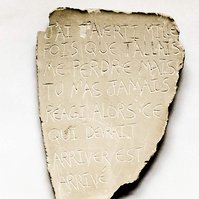 J'AI T'AVERTI MILLE
FOIS QUE T'ALLAIS
ME PERDRE MAIS
TU N'AS JAMAIS
REAGI ALORS CE
QUI DEVAIT
ARRIVER EST
ARRIVÉ